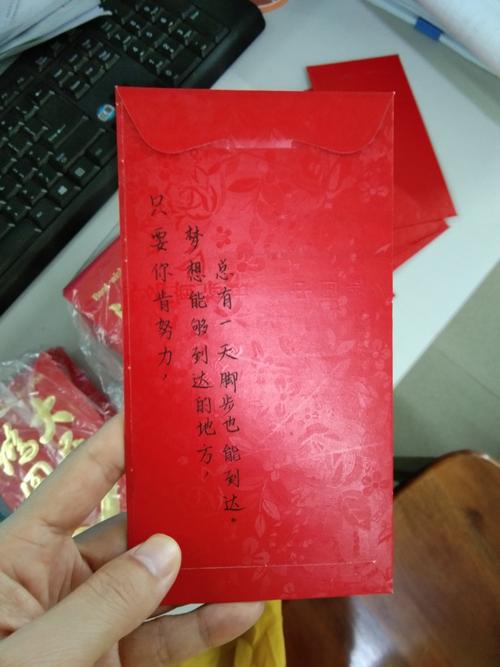 只要你肯努力，
梦想能够到达的地方，
总有一天脚步也能到达。